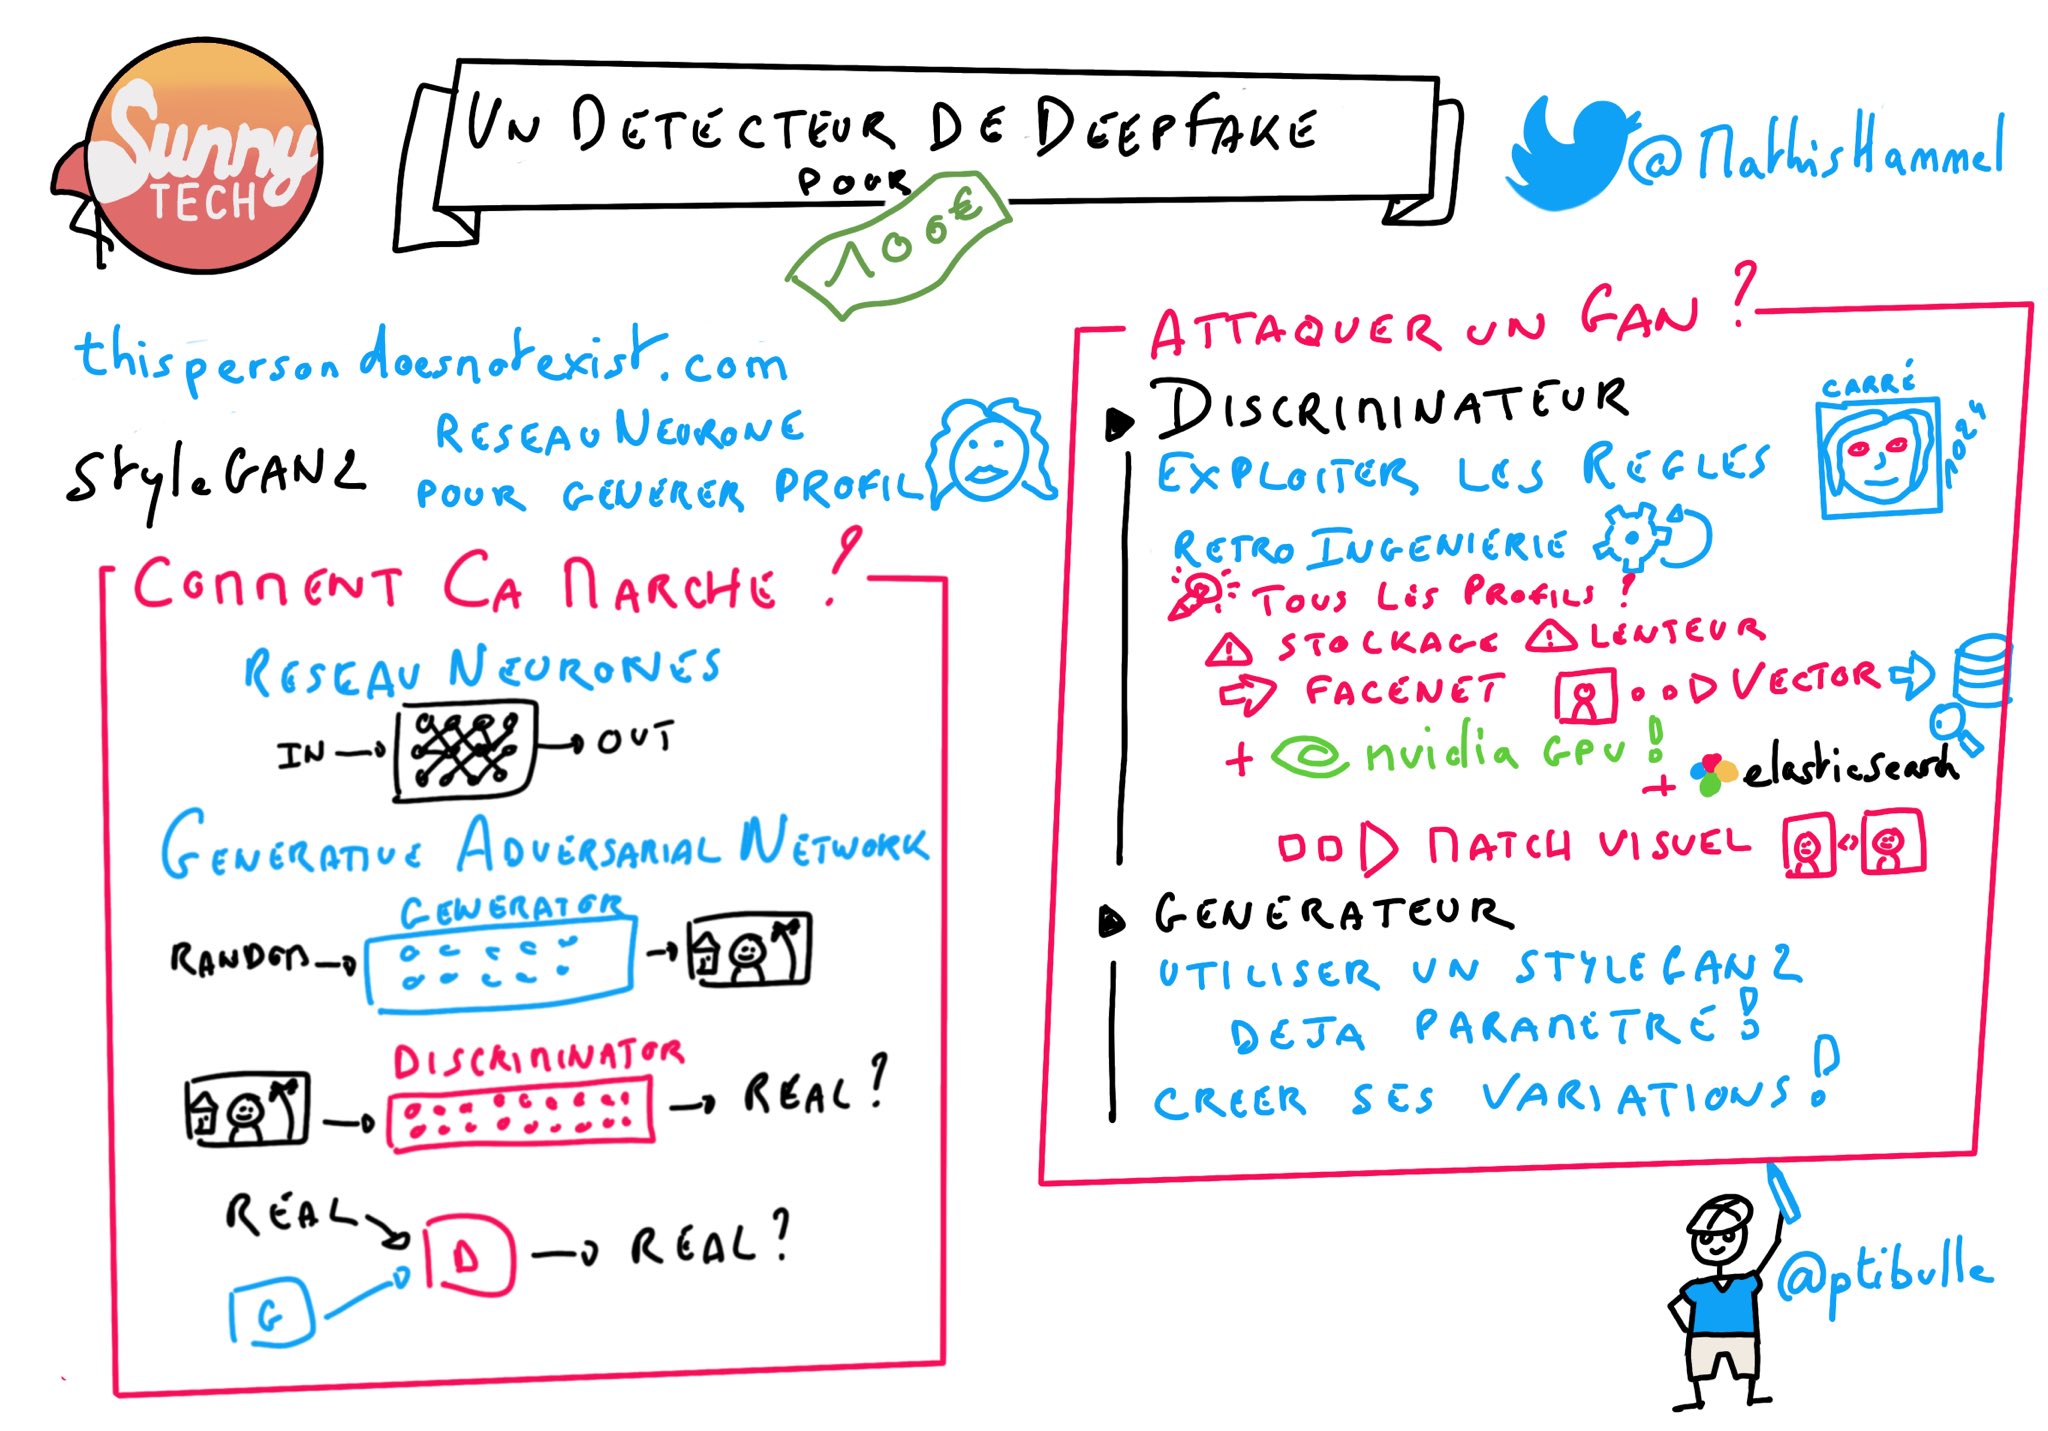 Sunny
TECH
UN DETECTEUR DE DEEPFAKE
POUR
100€
@MathisHammel
thispersondoesnotexist.com
StyleGAN2
RESEAU NEURONE
POUR GENERER PROFIL
COMMENT CA MARCHE ?
RESEAU NEURONES
IN
OUT
GENERATIVE ADVERSARIAL NETWORK
GENERATOR
RANDOM
DISCRIMINATOR
REAL ?
REAL
D
REAL ?
G
ATTAQUER UN GAN ?
DISCRIMINATEUR
CARRÉ
1024
EXPLOITER LES REGLES
RETRO INGENIERIE
TOUS LES PROFILS ?
STOCKAGE
LENTEUR
FACENET
VECTOR
+ nvidia GPU !
+ elasticsearch
MATCH VISUEL
GENERATEUR
UTILISER UN STYLEGAN2
DEJA PARAMETRÉ !
CREER SES VARIATIONS !
@ptibulle